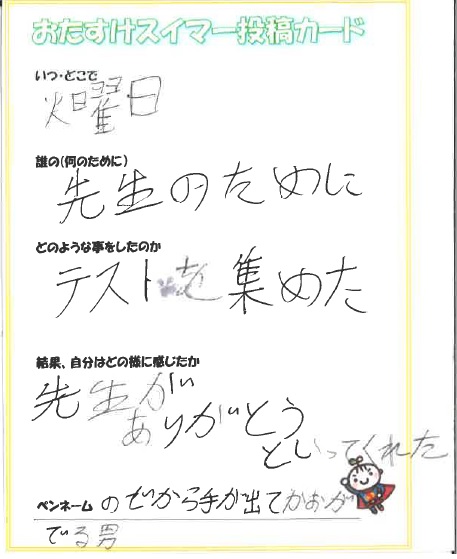 おたすけスイマー投稿カード
いつ・どこで
火曜日
誰の(何のために)
先生のために
どのような事をしたのか
テストを集めた
結果、自分はどの様に感じたか
先生が
ありがとう
といってくれた
ペンネーム のどから手が出てかおが
でる男